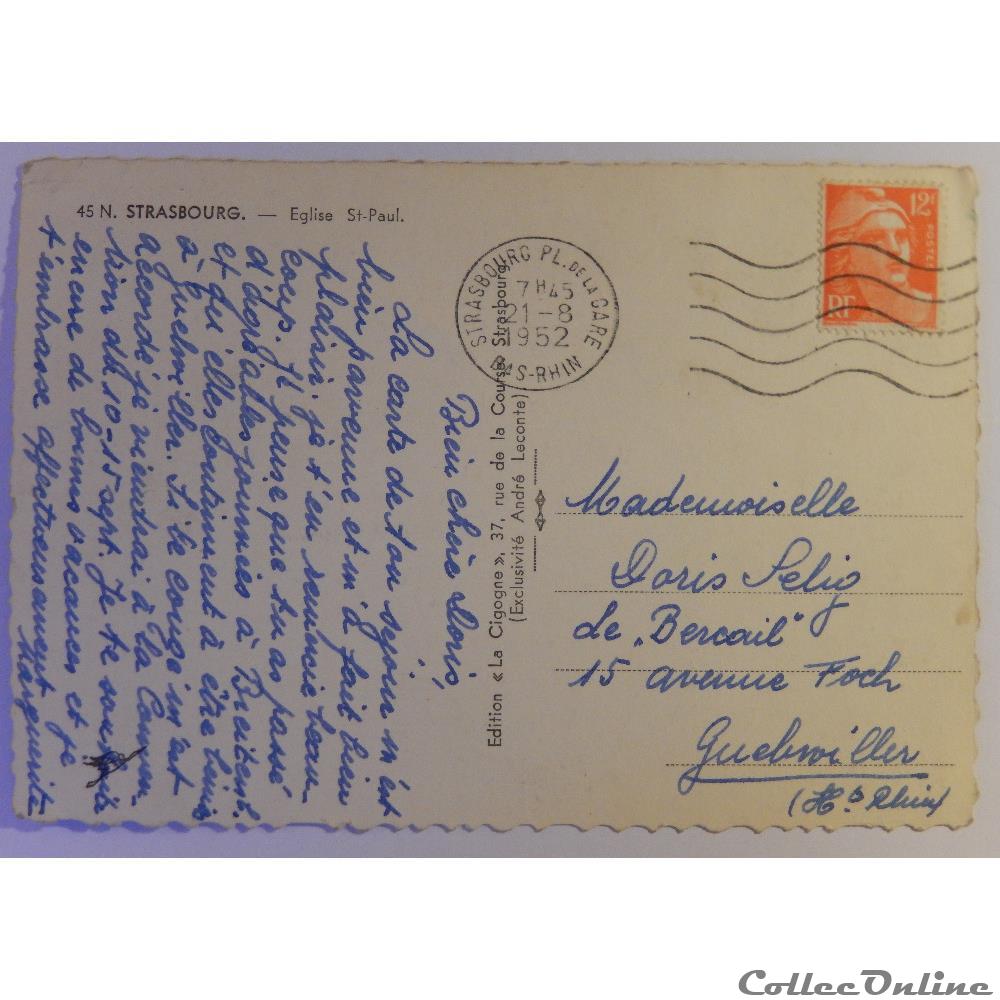 45 N. STRASBOURG. — Eglise St-Paul.
STRASBOURG PL. DE LA GARE
7H45
21-8
1952
BAS-RHIN
12F
POSTES
RF
Bien chère Doris,
La carte de ton séjour m'est
bien parvenue et m'a fait bien
plaisir. je t'en remercie beau-
coup. Je pense que tu as passé
d'agréables journées à
et elles continuent à être
à Guebwiller. Si le congé m'est
accordé je viendrai à la
du 10-15 sept. Je te souhaite
encore de bonnes vacances et je
t'embrasse affectueusement
Marguerite
Edition « La Cigogne », 37, rue de la Course, Strasbourg
(Exclusivité André Leconte)
Mademoiselle
Doris Selig
Le „Bercail"
15 avenue Foch
Guebwiller
(Ht Rhin)
CollecOnline